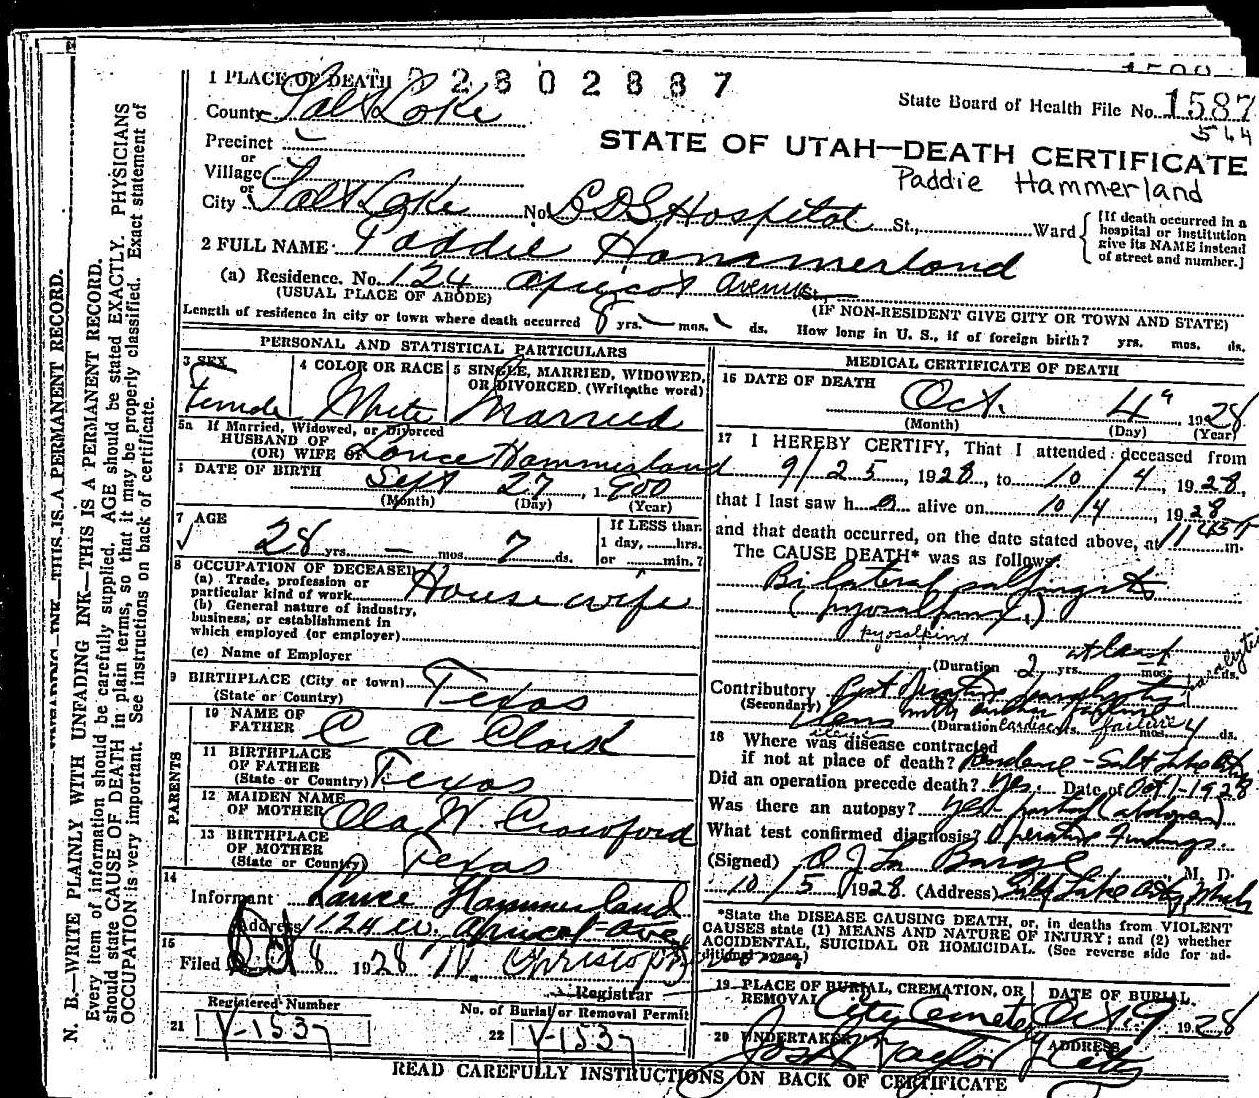 1 PLACE OF DEATH 2 8 0 2 8 8 7
State Board of Health File No. 1587
County Salt Lake
564
Precinct
STATE OF UTAH—DEATH CERTIFICATE
or
Village
Paddie Hammerland
or
City Salt Lake No. LDS Hospital St., Ward
[If death occurred in a
hospital or institution
give its NAME instead
of street and number.]
2 FULL NAME Paddie Hammerland
(a) Residence. No. 124 Apricot Avenue
(USUAL PLACE OF ABODE)
(IF NON-RESIDENT GIVE CITY OR TOWN AND STATE)
Length of residence in city or town where death occurred 8 yrs. mos. ds. How long in U. S., if of foreign birth? yrs. mos. ds.
PERSONAL AND STATISTICAL PARTICULARS
3 SEX
Female
4 COLOR OR RACE
White
5 SINGLE, MARRIED, WIDOWED,
OR DIVORCED. (Write the word)
Married
5a If Married, Widowed, or Divorced
HUSBAND OF
(OR) WIFE OF Lance Hammerland
DATE OF BIRTH
Sept 27, 1900
(Month) (Day) (Year)
7 AGE
28 yrs. — mos. 7 ds.
If LESS than
1 day, hrs.
or min.?
8 OCCUPATION OF DECEASED
(a) Trade, profession or
particular kind of work Housewife
(b) General nature of industry,
business, or establishment in
which employed (or employer)
(c) Name of Employer
9 BIRTHPLACE (City or town)
(State or Country) Texas
PARENTS
10 NAME OF
FATHER C A Clark
11 BIRTHPLACE
OF FATHER
(State or Country) Texas
12 MAIDEN NAME
OF MOTHER Ola W Crawford
13 BIRTHPLACE
OF MOTHER
(State or Country) Texas
14
Informant Lance Hammerland
Address 1124 W. Apricot Ave
15
Filed Oct 8 1928
Registrar
Registered Number
21 V-1537
No. of Burial or Removal Permit
22 V-1537
MEDICAL CERTIFICATE OF DEATH
16 DATE OF DEATH
Oct. 4, 1928
(Month) (Day) (Year)
17 I HEREBY CERTIFY, That I attended deceased from
9/25, 1928, to 10/4, 1928,
that I last saw h alive on 10/4, 1928
and that death occurred, on the date stated above, at 1145 P m.
The CAUSE DEATH* was as follows:
Bilateral salpingitis
(pyosalpinx.)
pyosalpinx
at least
(Duration 2 yrs. mos. ds.
Contributory Post Operative
(Secondary)
Ileus (Duration cardiac yrs. failure mos. 4 ds.
18 Where was disease contracted
if not at place of death? Residence - Salt Lake City
Did an operation precede death? Yes. Date of Oct 1-1928
Was there an autopsy? yes
What test confirmed diagnosis? Operative findings.
(Signed) O J La Barge, M. D.
10/5 1928 (Address) Salt Lake City, Utah
*State the DISEASE CAUSING DEATH, or, in deaths from VIOLENT
CAUSES state (1) MEANS AND NATURE OF INJURY; and (2) whether
ACCIDENTAL, SUICIDAL OR HOMICIDAL. (See reverse side for ad-
ditional space.)
19 PLACE OF BURIAL, CREMATION, OR
REMOVAL City Cemetery
DATE OF BURIAL.
Oct. 9 1928
20 UNDERTAKER
ADDRESS
City
READ CAREFULLY INSTRUCTIONS ON BACK OF CERTIFICATE
N. B.—WRITE PLAINLY WITH UNFADING INK—THIS IS A PERMANENT RECORD.
Every item of information should be carefully supplied. AGE should be stated EXACTLY. PHYSICIANS
should state CAUSE OF DEATH in plain terms, so that it may be properly classified. Exact statement of
OCCUPATION is very important. See instructions on back of certificate.